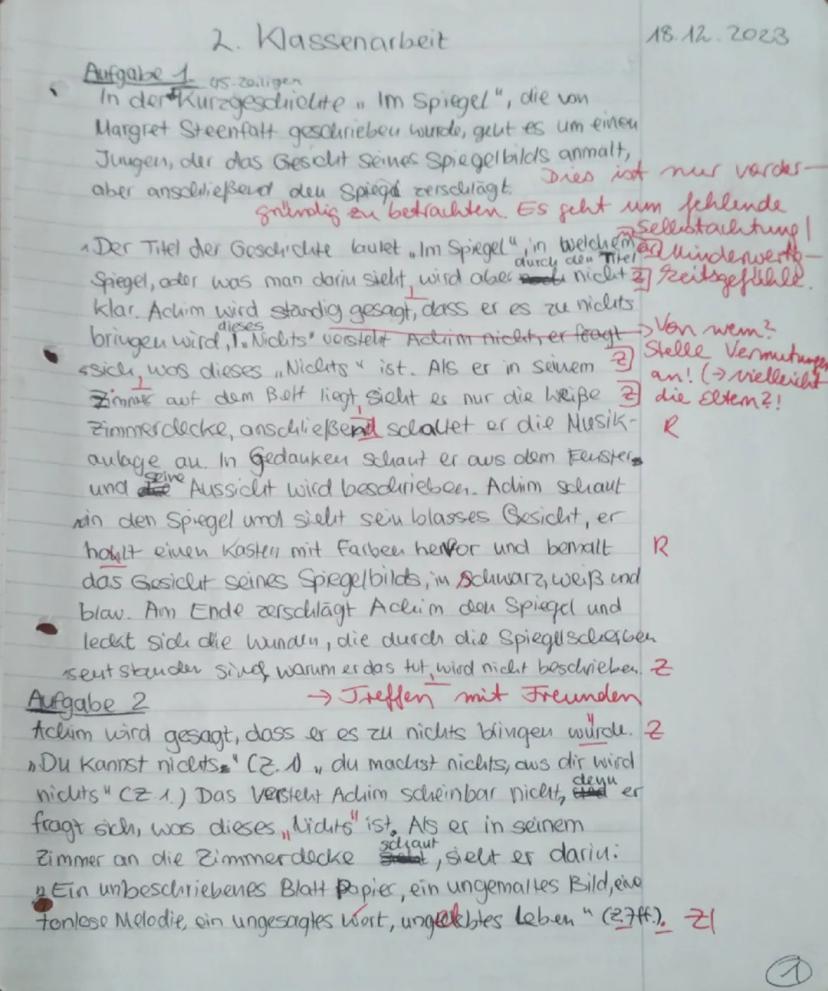 2. Klassenarbeit 18.12.2023
Aufgabe 1 45-zeiligen
In der Kurzgeschichte „Im Spiegel", die von
Margret Steenfatt geschrieben wurde, geht es um einen
Jungen, der das Gesicht seines Spiegelbilds anmalt,
aber anschließend den Spiegel zerschlägt.
Dies ist nur vorder-
gründig zu betrachten. Es geht um fehlende
Selbstachtung/
Minderwertig-
keitsgefühle.
Der Titel der Geschichte lautet „Im Spiegel", in welchem
Spiegel, oder was man darin sieht, wird aber durch den Titel nicht Z
klar. Achim wird ständig gesagt, dass er es zu nichts
bringen wird, dieses „Nichts" versteht Achim nicht, er fragt
→ Von wem?
Stelle Vermutungen
an! (→ vielleicht
die Eltern?!
sich, was dieses „Nichts" ist. Als er in seinem Z
Zimmer auf dem Bett liegt, sieht er nur die weiße Z
Zimmerdecke, anschließend schaltet er die Musik- R
anlage an. In Gedanken schaut er aus dem Fenster
und seine Aussicht wird beschrieben. Achim schaut
in den Spiegel und sieht sein blasses Gesicht, er
hohlt einen Kasten mit Farben hervor und bemalt R
das Gesicht seines Spiegelbilds, in schwarz, weiß und
blau. Am Ende zerschlägt Achim den Spiegel und
leckt sich die Wunden, die durch die Spiegelscheiben
entstanden sind, warum er das tut, wird nicht beschrieben. Z
→ Treffen mit Freunden
Aufgabe 2
Achim wird gesagt, dass er es zu nichts bringen würde. Z
„Du kannst nichts." (Z.1) „du machst nichts, aus dir wird
nichts" (Z 1.) Das versteht Achim scheinbar nicht, denn er
fragt sich, was dieses „Nichts" ist. Als er in seinem
Zimmer an die Zimmerdecke schaut, sieht er darin:
„Ein unbeschriebenes Blatt Papier, ein ungemaltes Bild, eine
tonlose Melodie, ein ungesagtes Wort, ungelebtes Leben" (Z7ff.). Z/
1